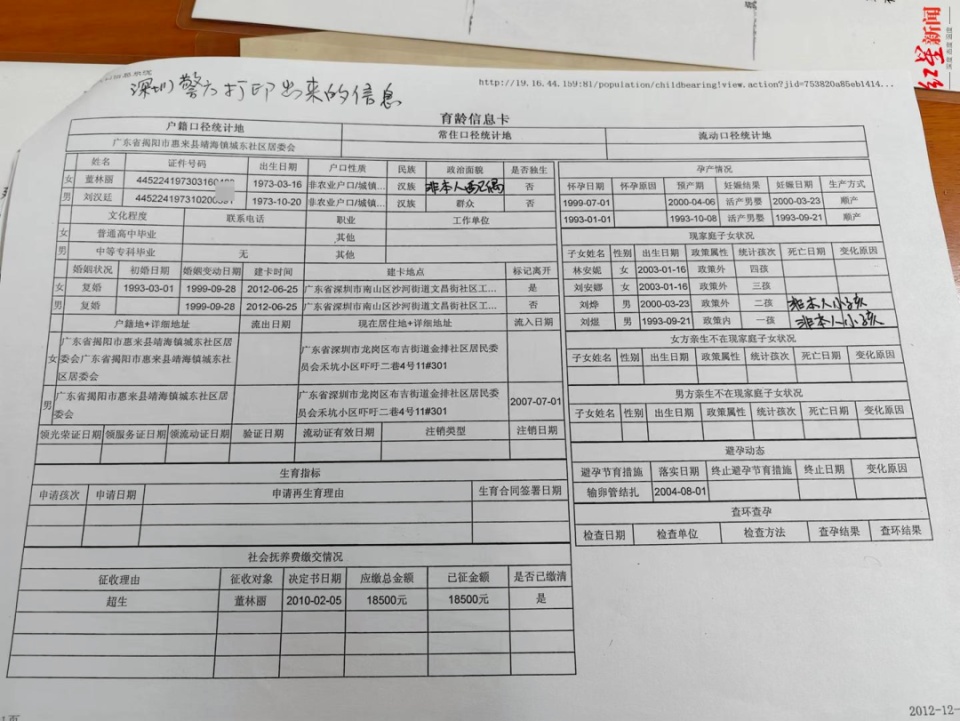 红星新闻
深圳警方打印出来的信息
http://19.16.44.159:81/population/childbearing!view.action?jid=753820a85eb1414...
育龄信息卡
户籍口径统计地 常住口径统计地 流动口径统计地
广东省揭阳市惠来县靖海镇城东社区居委会
姓名 证件号码 出生日期 户口性质 民族 政治面貌 是否独生
女 董林丽 1973-03-16 非农业户口/城镇... 汉族 非本人配偶 否
男 刘汉廷 1973-10-20 非农业户口/城镇... 汉族 群众 否
文化程度 联系电话 职业 工作单位
女 普通高中毕业 其他
男 中等专科毕业 无 其他
婚姻状况 初婚日期 婚姻变动日期 建卡时间 建卡地点 标记离开
女 复婚 1993-03-01 1999-09-28 2012-06-25 广东省深圳市南山区沙河街道文昌街社区工... 是
男 复婚 1999-09-28 2012-06-25 广东省深圳市南山区沙河街道文昌街社区工... 否
户籍地+详细地址 流出日期 现在居住地+详细地址 流入日期
女 广东省揭阳市惠来县靖海镇城东社区居
委会广东省揭阳市惠来县靖海镇城东社
区居委会
广东省深圳市龙岗区布吉街道金排社区居民委
员会禾坑小区吓吓二巷4号11#301
男 广东省揭阳市惠来县靖海镇城东社区居
委会
广东省深圳市龙岗区布吉街道金排社区居民委
员会禾坑小区吓吓二巷4号11#301
2007-07-01
领光荣证日期 领服务证日期 领流动证日期 验证日期 流动证有效日期 注销类型 注销日期
生育指标
申请孩次 申请日期 申请再生育理由 生育合同签署日期
社会抚养费缴交情况
征收理由 征收对象 决定书日期 应缴总金额 已征金额 是否已缴清
超生 董林丽 2010-02-05 18500元 18500元 是
孕产情况
怀孕日期 怀孕原因 预产期 妊娠结果 妊娠日期 生产方式
1999-07-01 2000-04-06 活产男婴 2000-03-23 顺产
1993-01-01 1993-10-08 活产男婴 1993-09-21 顺产
现家庭子女状况
子女姓名 性别 出生日期 政策属性 统计孩次 死亡日期 变化原因
林安妮 女 2003-01-16 政策外 四孩
刘安娜 女 2003-01-16 政策外 三孩
刘烨 男 2000-03-23 政策外 二孩 非本人小孩
刘煜 男 1993-09-21 政策内 一孩 非本人小孩
女方亲生不在现家庭子女状况
子女姓名 性别 出生日期 政策属性 统计孩次 死亡日期 变化原因
男方亲生不在现家庭子女状况
子女姓名 性别 出生日期 政策属性 统计孩次 死亡日期 变化原因
避孕动态
避孕节育措施 落实日期 终止避孕节育措施 终止日期 变化原因
输卵管结扎 2004-08-01
查环查孕
检查日期 检查单位 检查方法 查孕结果 查环结果
2012-12-